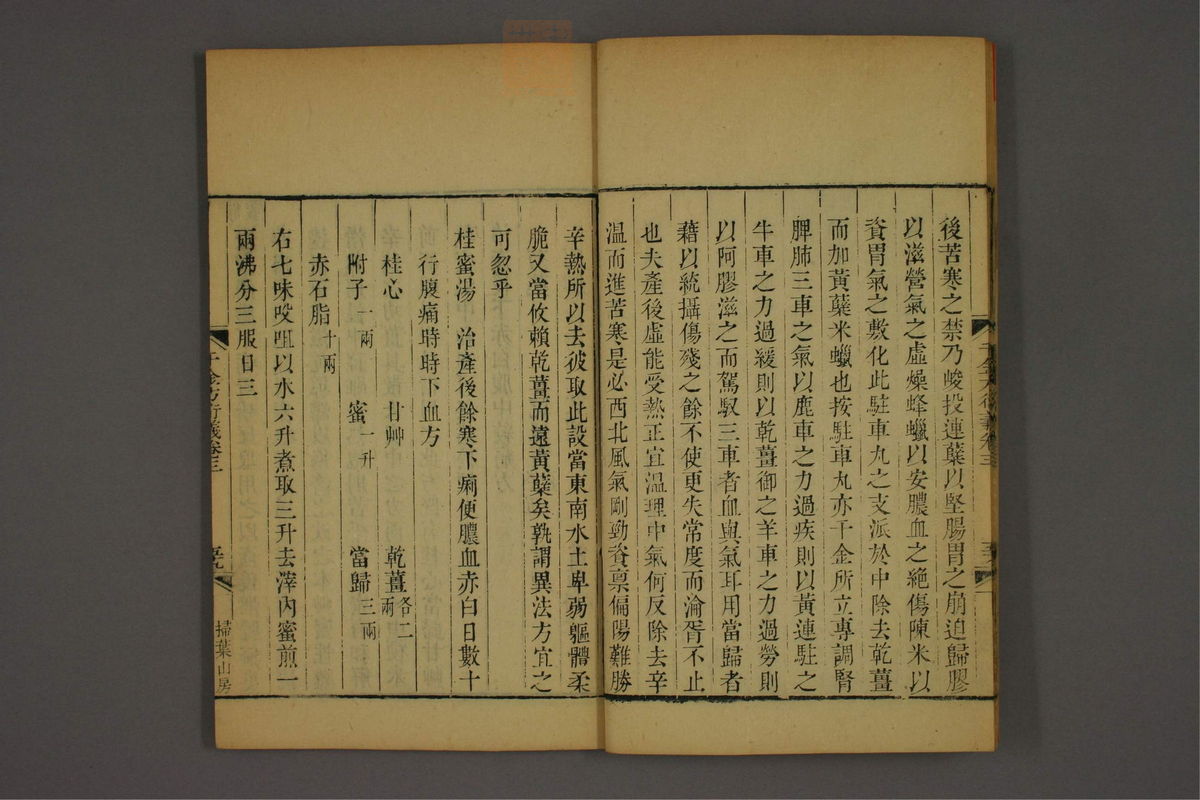 後苦寒之禁乃峻投連蘗以堅腸胃之崩迫歸膠
以滋營氣之虛燥蜂蠟以安膿血之絶傷陳米以
資胃氣之敷化此駐車丸之支派於中除去乾薑
而加黃蘗米蠟也按駐車丸亦千金所立專調腎
脾肺三車之氣以鹿車之力過疾則以黃連駐之
牛車之力過緩則以乾薑御之羊車之力過勞則
以阿膠滋之而駕馭三車者血與氣耳用當歸者
藉以統攝傷殘之餘不使更失常度而淪胥不止
也夫產後虛能受熱正宜溫理中氣何反除去辛
温而進苦寒是必西北風氣剛勁資禀偏陽難勝
辛熱所以去彼取此設當東南水土卑弱軀體柔
脆又當攸賴乾薑而遠黃蘗矣孰謂異法方宜之
可忽乎
桂蜜湯 治產後餘寒下痢便膿血赤白日數十
行腹痛時時下血方
桂心 甘艸 乾薑各二兩
附子一兩 蜜一升 當歸三兩
赤石脂十兩
右七味㕮咀以水六升煮取三升去滓內蜜煎一
兩沸分三服日三
千金方衍義卷三
掃葉山房